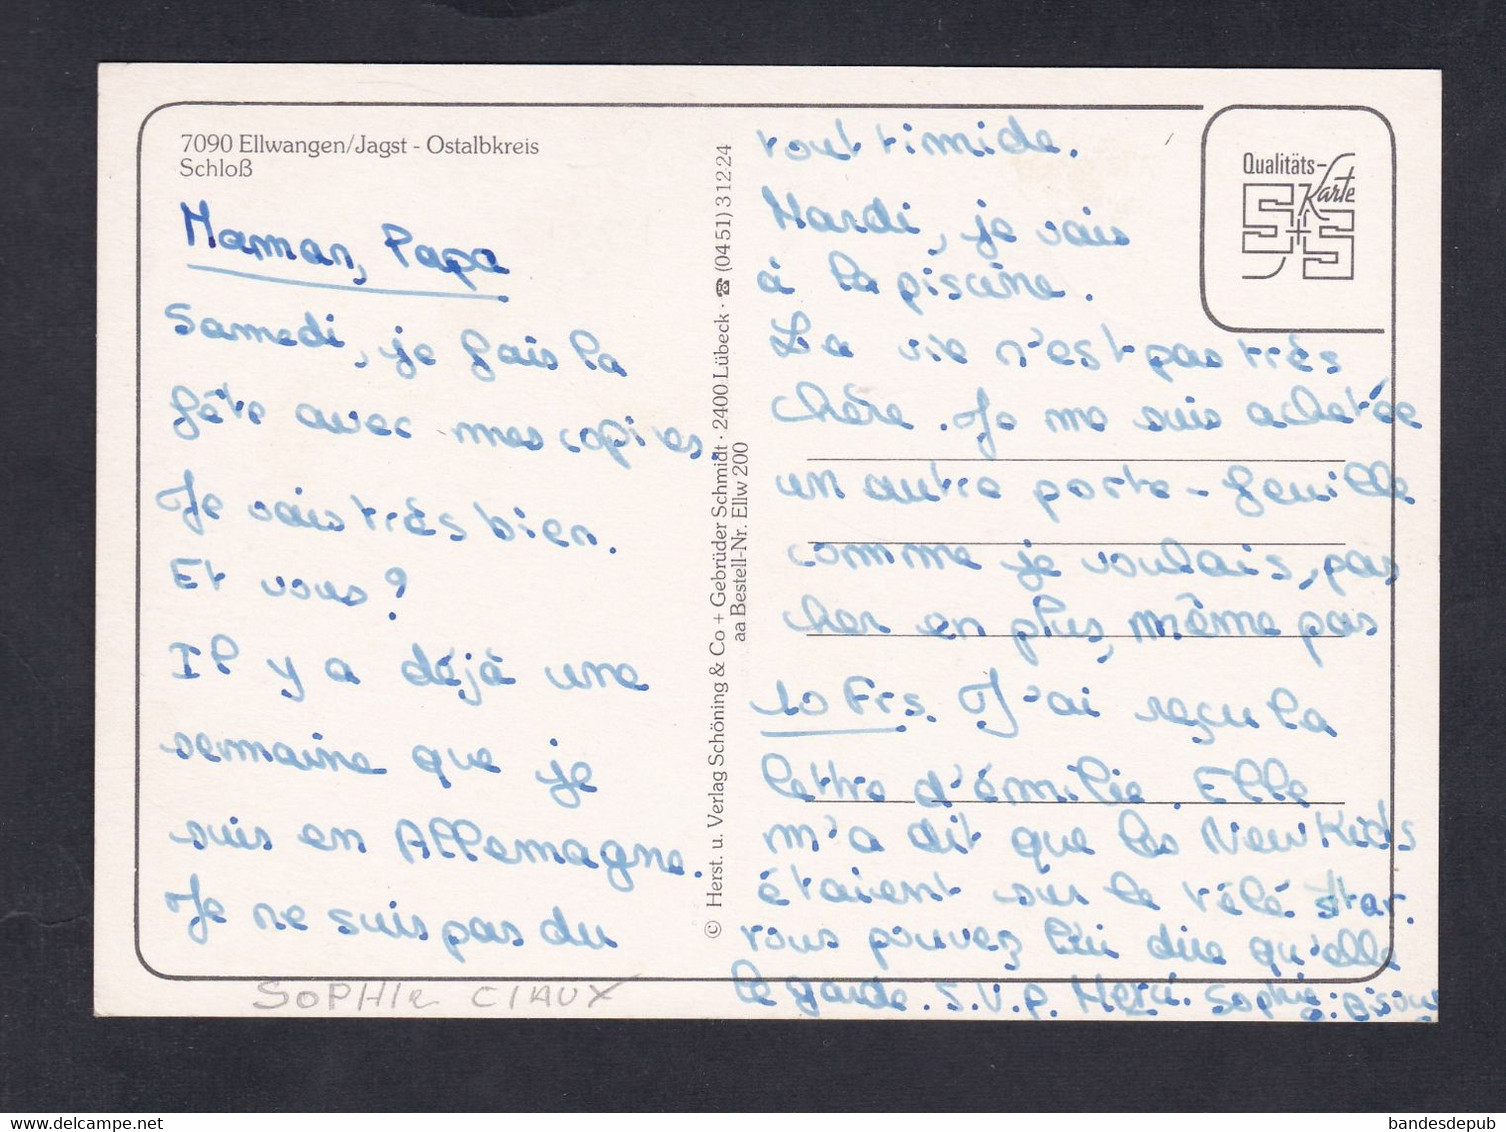 7090 Ellwangen/Jagst - Ostalbkreis
Schloß
Maman, Papa
Samedi, je fais la
fête avec mes copines.
Je vais très bien.
Et vous?
Il y a déjà une
semaine que je
suis en Allemagne.
Je ne suis pas du
SOPHIE CIAUX
© Herst. u. Verlag Schöning & Co + Gebrüder Schmidt · 2400 Lübeck · ☎ (0451) 31224
aa Bestell-Nr. Ellw 200
tout timide.
Mardi, je vais
à la piscine.
La vie n'est pas très
chère. Je me suis achetée
un autre porte-feuille
comme je voulais, pas
cher en plus, même pas
10 Frs. J'ai reçu la
lettre d'émilie. Elle
m'a dit que les New Kids
étaient sur le télé star.
vous pouvez lui dire qu'elle
le garde. S.V.P. Merci. Sophie. Bisous
Qualitäts-
Karte
S+S
bandesdepub